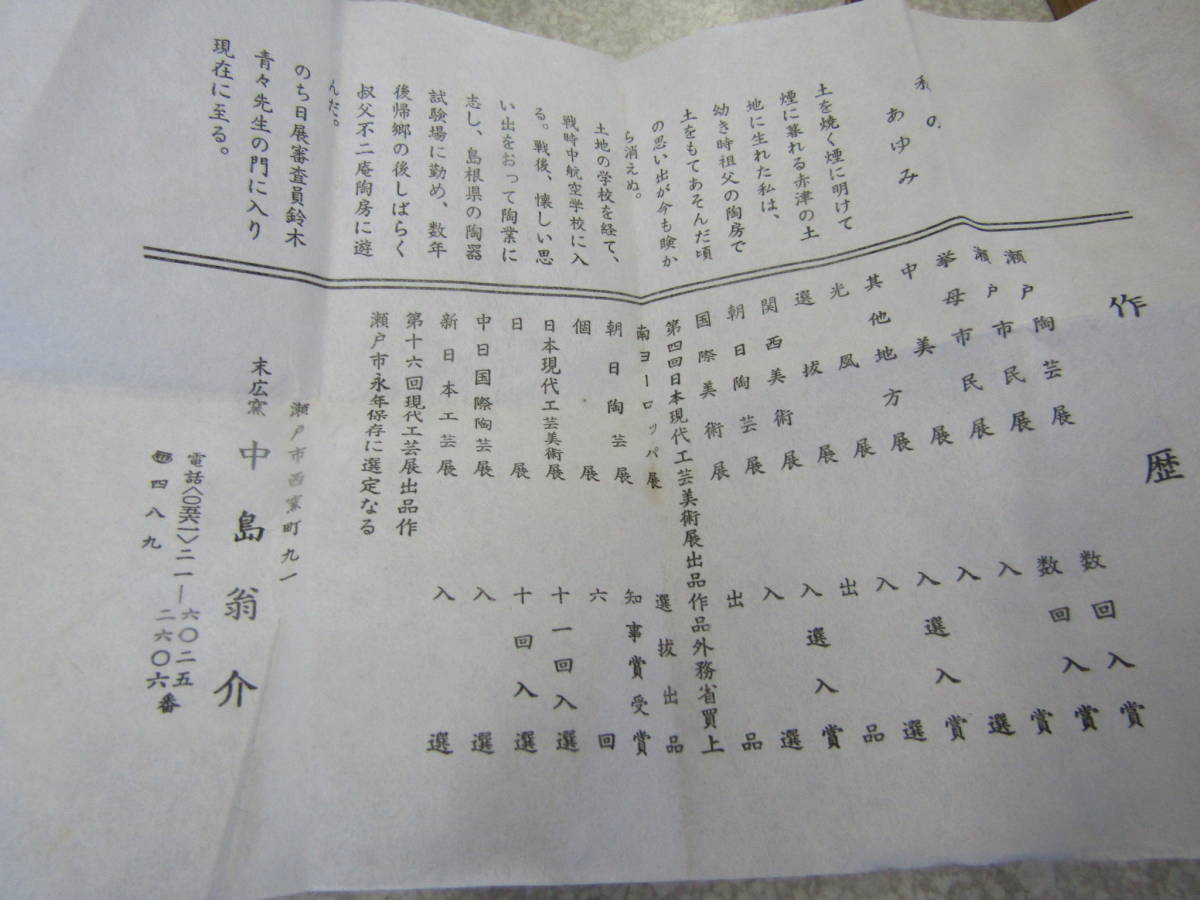 私のあゆみ
土を焼く煙に明けて
煙に暮れる赤津の土
地に生れた私は、
幼き時祖父の陶房で
土をもてあそんだ頃
の思い出が今も瞼か
ら消えぬ。
土地の学校を経て、
戦時中航空学校に入
る。戦後、懐しい思
い出をおって陶業に
志し、島根県の陶器
試験場に勤め、数年
後帰郷の後しばらく
叔父不二庵陶房に遊
んだ。
のち日展審査員鈴木
青々先生の門に入り
現在に至る。
作歴
瀬戸陶芸展 数回入賞
瀬戸市民展 数回入賞
挙母市民展 入賞
中美展 入選
其他地方展 入選入賞
光風展 入選
選抜展 出品
関西美術展 入選入賞
朝日陶芸展 入選
国際美術展 出品
第四回日本現代工芸美術展出品作品外務省買上
南ヨーロッパ展 選抜出品
朝日陶芸展 知事賞受賞
個展 六回
日本現代工芸美術展 十一回入選
日展 十回入選
中日国際陶芸展 入選
新日本工芸展 入選
第十六回現代工芸展出品作
瀬戸市永年保存に選定なる
瀬戸市西窯町九一
末広窯 中島翁介
電話〈〇五六一〉二一―六〇二五
〒四八九 二六〇六番